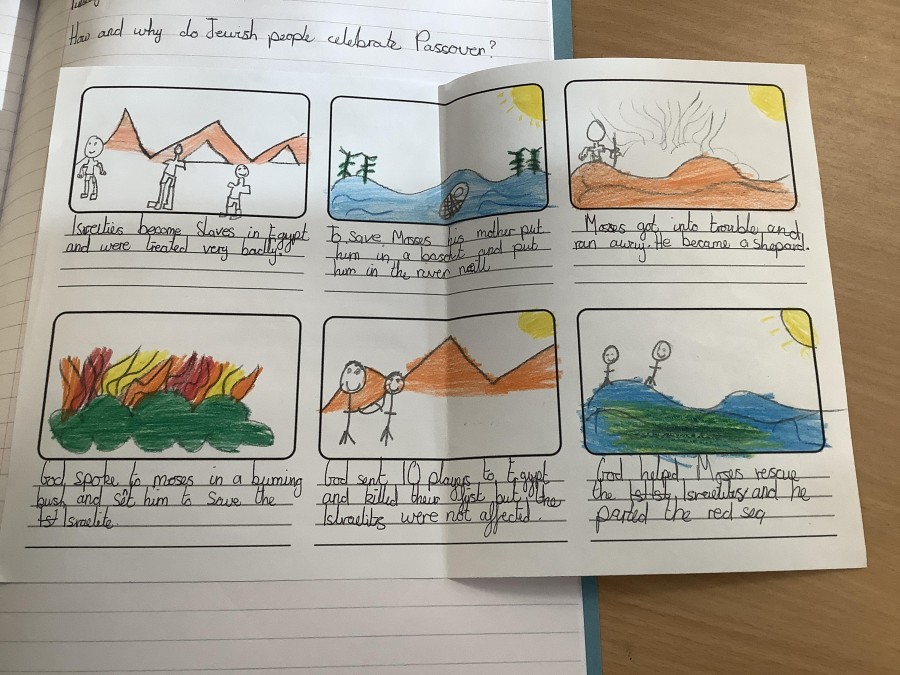 How and why do Jewish people celebrate Passover?
Isrelties become slaves in Egypt
and were treated very badly.
To save Moses his mother put
him in a basckt and put
him in the river neall
Moses got into trouble and
ran away. He became a shepard.
God spoke to moses in a burning
bush and set him to save the
Israelite.
God sent 10 plagus to Egypt
and killed their but the
Isluraelits were not affected.
God helped Moses rescue
the Israelites and he
parted the red sea